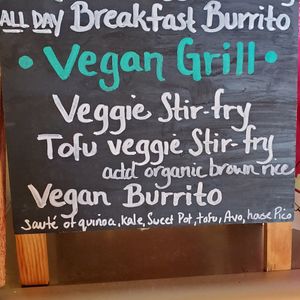 ALL DAY Breakfast Burrito
• Vegan Grill •
Veggie Stir-fry
Tofu veggie Stir-fry
add organic brown rice
Vegan Burrito
sauté of quinoa, kale, Sweet Pot, tofu, Avo, house Pico